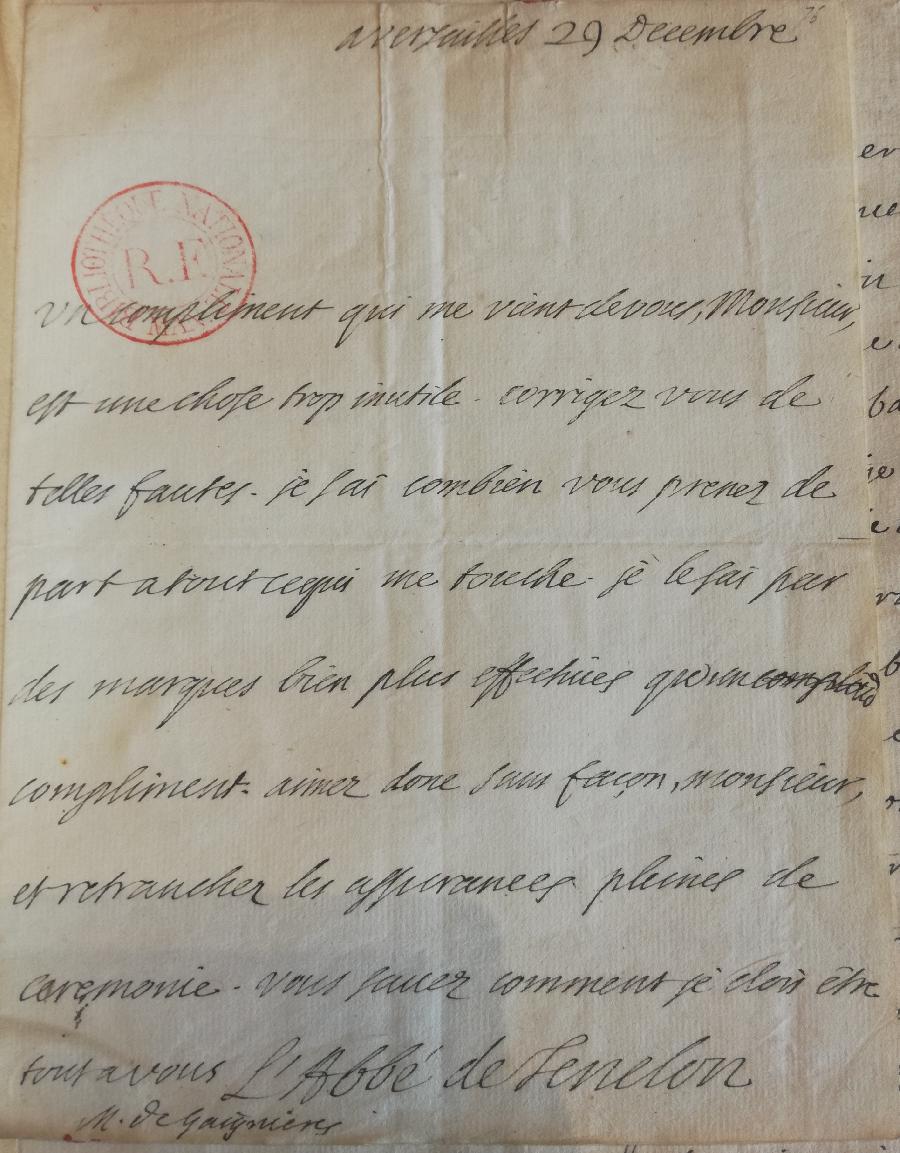 a versailles 29 Decembre
BIBLIOTHÈQUE NATIONALE
R.F
MAN
un compliment qui me vient devous, Monsieur,
est une chose trop inutile. corrigez vous de
telles fautes. je sai combien vous prenez de
part atoutcequi me touche. je le sai par
des marques bien plus effectives qu'un
compliment. aimez donc sans façon, monsieur,
et retranchez les assurances pleines de
ceremonie. vous savez comment je dois être
tout avous L'Abbé de Fenelon
M. de Gaignieres